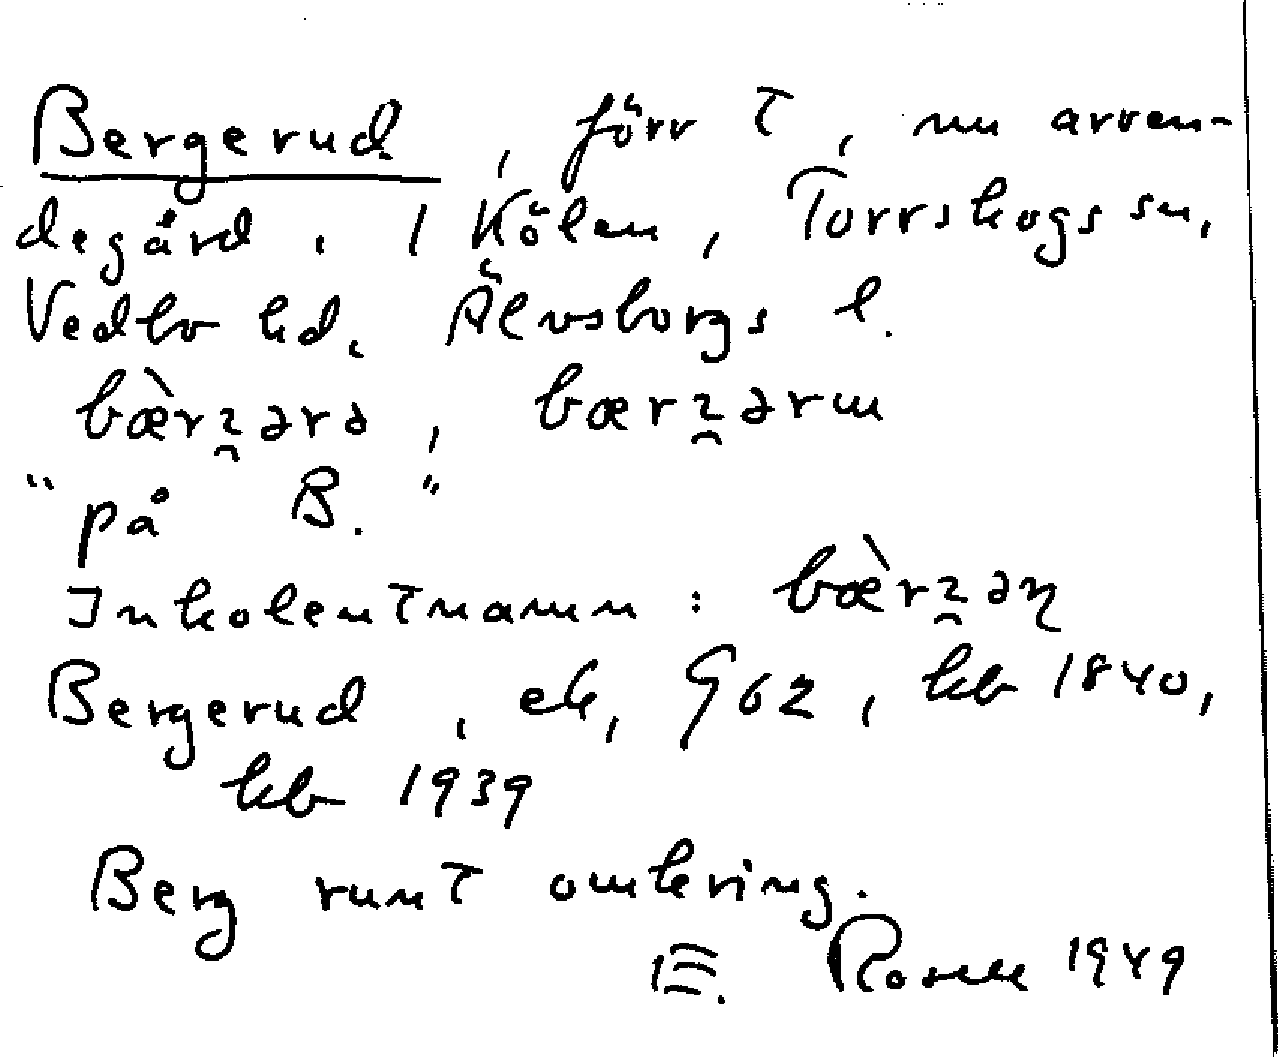 Bergerud, förr T, nu arren-
degård. I Kölen, Torrskogs sn,
Vedbo hd, Älvsborgs l.
bæ̀rʒ̯ərə, bærʒ̯ərm
"på B."
Inkolentnamn: bæ̀rʒ̯əɳ
Bergerud, ek, G62, kb 1840,
kb 1939
Berg runt omkring.
E. Rosell 1949